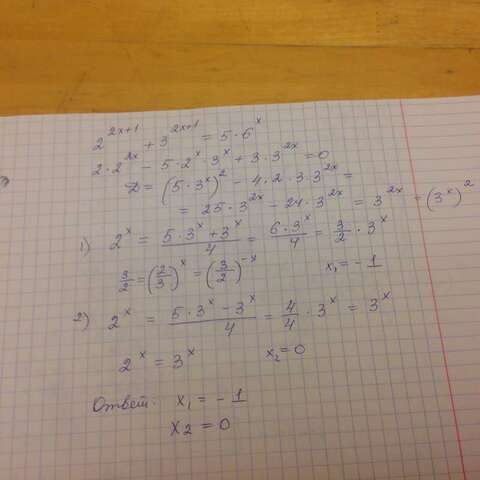 2^{2x+1} + 3^{2x+1} = 5 · 6^x
2 · 2^{2x} - 5 · 2^x · 3^x + 3 · 3^{2x} = 0
D = (5 · 3^x)^2 - 4 · 2 · 3 · 3^{2x} =
= 25 · 3^{2x} - 24 · 3^{2x} = 3^{2x} = (3^x)^2
1) 2^x = (5 · 3^x + 3^x)/4 = (6 · 3^x)/4 = 3/2 · 3^x
3/2 = (2/3)^x = (3/2)^{-x} x_1 = - 1
2) 2^x = (5 · 3^x - 3^x)/4 = 4/4 · 3^x = 3^x
2^x = 3^x x_2 = 0
Ответ. x_1 = - 1
x_2 = 0